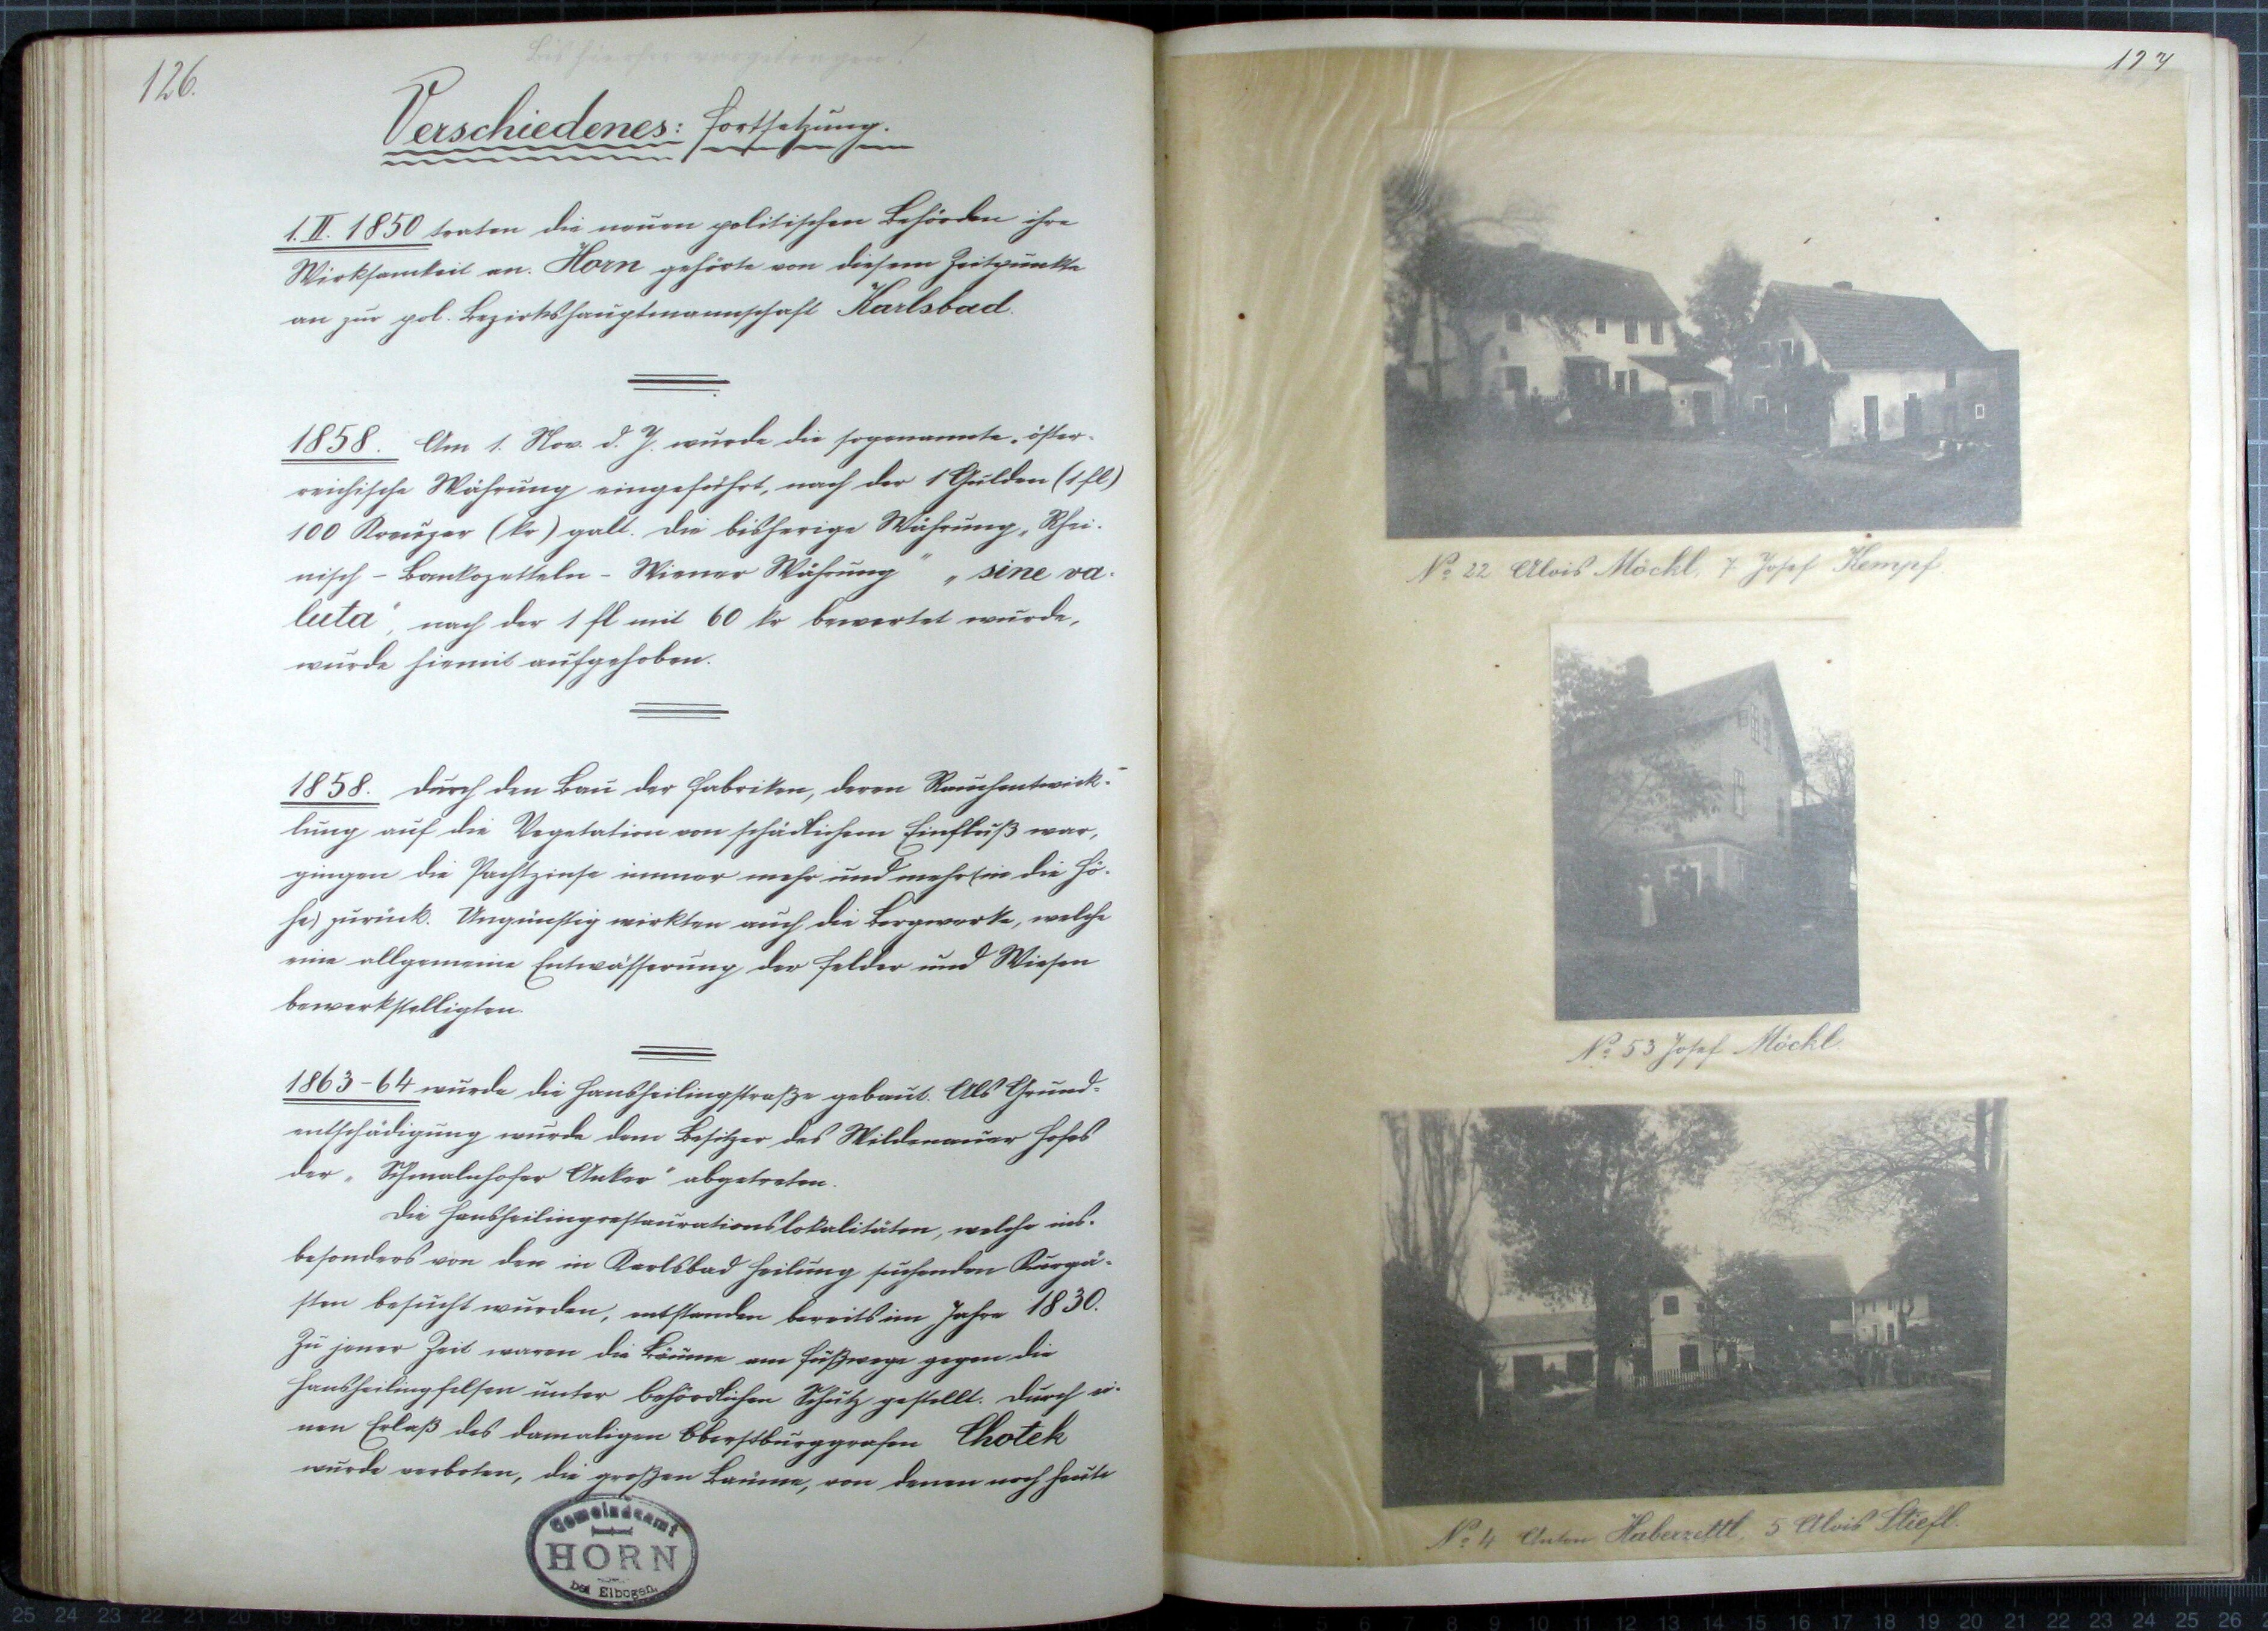 Bis hierher vorgetragen!
126.
Verschiedenes: Fortsetzung.
1. II. 1850 traten die neuen politischen Behörden ihre
Wirksamkeit an. Horn gehörte von diesem Zeitpunkte
an zur pol. Bezirkshauptmannschaft Karlsbad.
1858. Am 1. Nov. d. J. wurde die sogenannte „öster-
reichische Währung eingeführt, nach der 1 Gulden (1 fl)
100 Kreuzer (kr) galt. Die bisherige Währung „Rhei-
nisch - Bankozetteln - Wiener Währung" „sine va-
luta", nach der 1 fl mit 60 kr bewertet wurde,
wurde hiemit aufgehoben.
1858. Durch den Bau der Fabriken, deren Rauchentwick-
lung auf die Vegetation von schädlichem Einfluß war,
gingen die Pachtzinse immer mehr und mehr (in die Hö-
he) zurück. Ungünstig wirkten auch die Bergwerke, welche
eine allgemeine Entwässerung der Felder und Wiesen
bewerkstelligten.
1863-64 wurde die Hansheilingstraße gebaut. Als Grund-
entschädigung wurde dem Besitzer des Wildenauer Hofes
der „Schmalnhofer Acker" abgetreten.
Die Hansheilingrestaurationslokalitäten, welche ins-
besonders von den in Karlsbad Heilung suchenden Kurgä-
sten besucht wurden, entstanden bereits im Jahre 1830.
Zu jener Zeit waren die Bäume am Fußwege gegen die
Hansheilingfelsen unter behördlichen Schutz gestellt. Durch ei-
nen Erlaß des damaligen Oberstburggrafen Chotek
wurde verboten, die großen Bäume, von denen noch heute
Gemeindeamt
HORN
bei Elbogen.
127
No 22 Alois Möckl, 7 Josef Kempf.
No 53 Josef Möckl.
No 4 Anton Haberzettl, 5 Alois Stiefl.
25 24 23 22 21 20 19 18 17 16 15 14 13 12 11
3 4 5 6 7 8 9 10 11 12 13 14 15 16 17 18 19 20 21 22 23 24 25 26